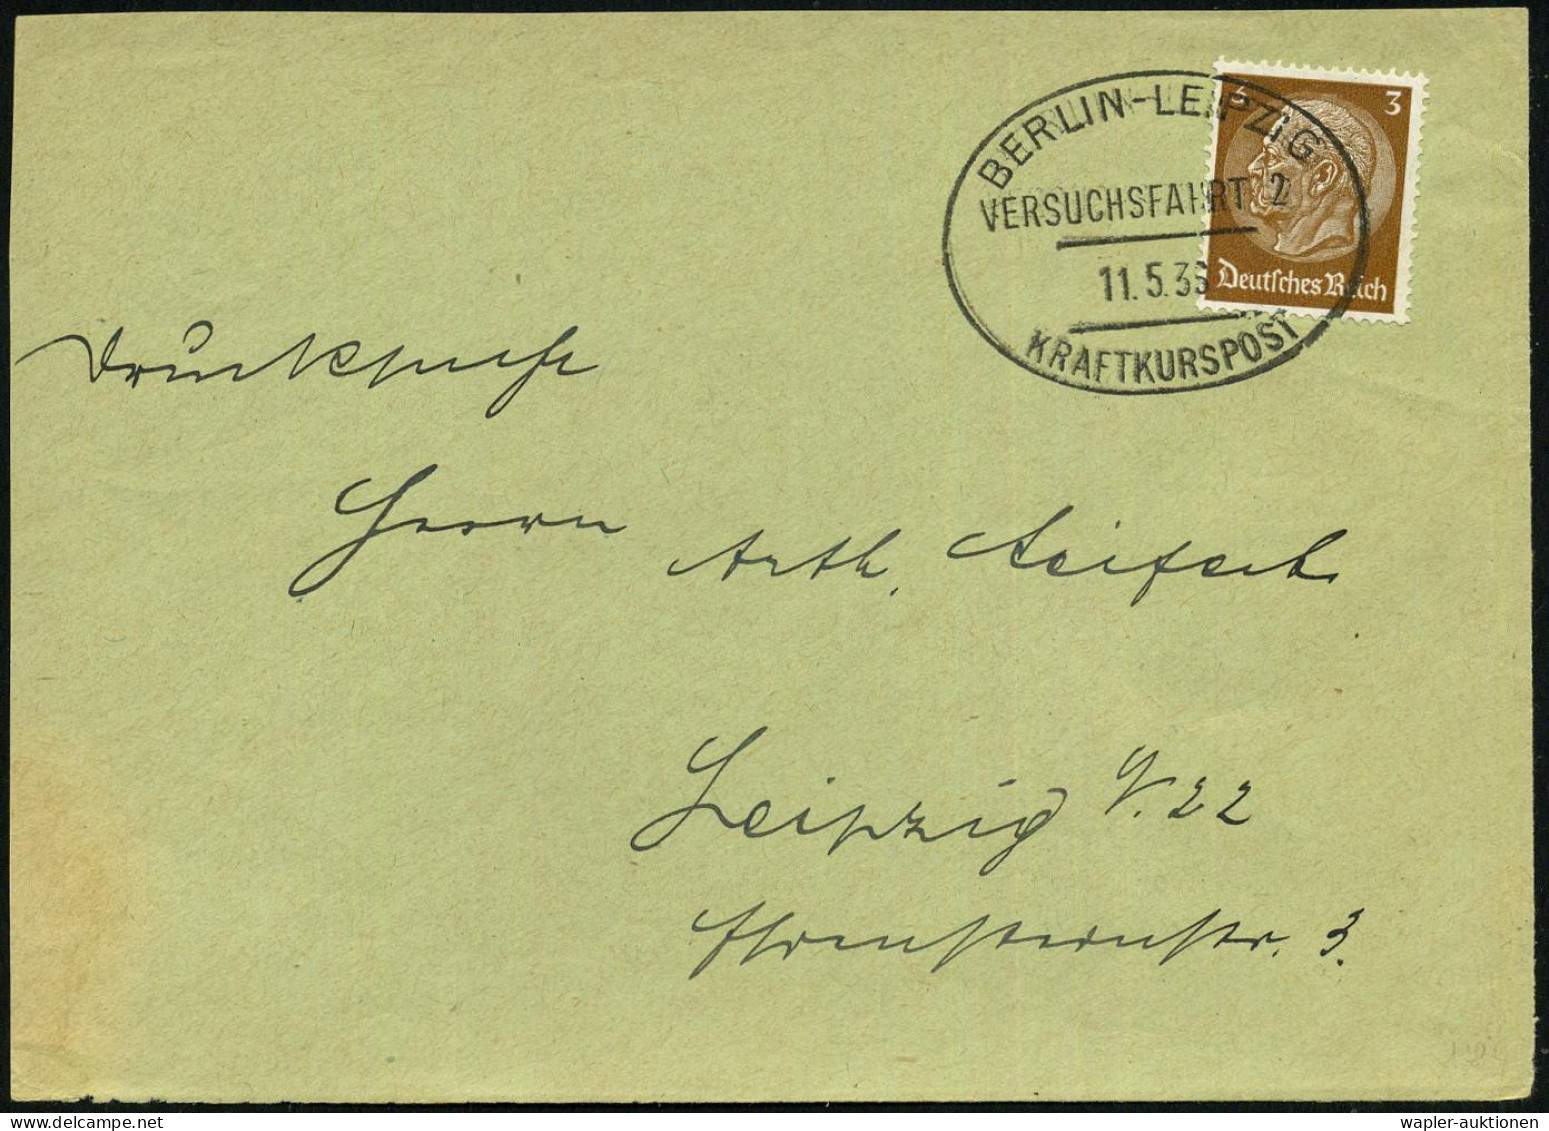 BERLIN-LEIPZIG
VERSUCHSFAHRT 2
11.5.36
KRAFTKURSPOST
3 3
Deutsches Reich
Drucksache
Herrn Arth. Seifert
Leipzig N. 22
Ehrensteinstr. 3.
wapler-auktionen